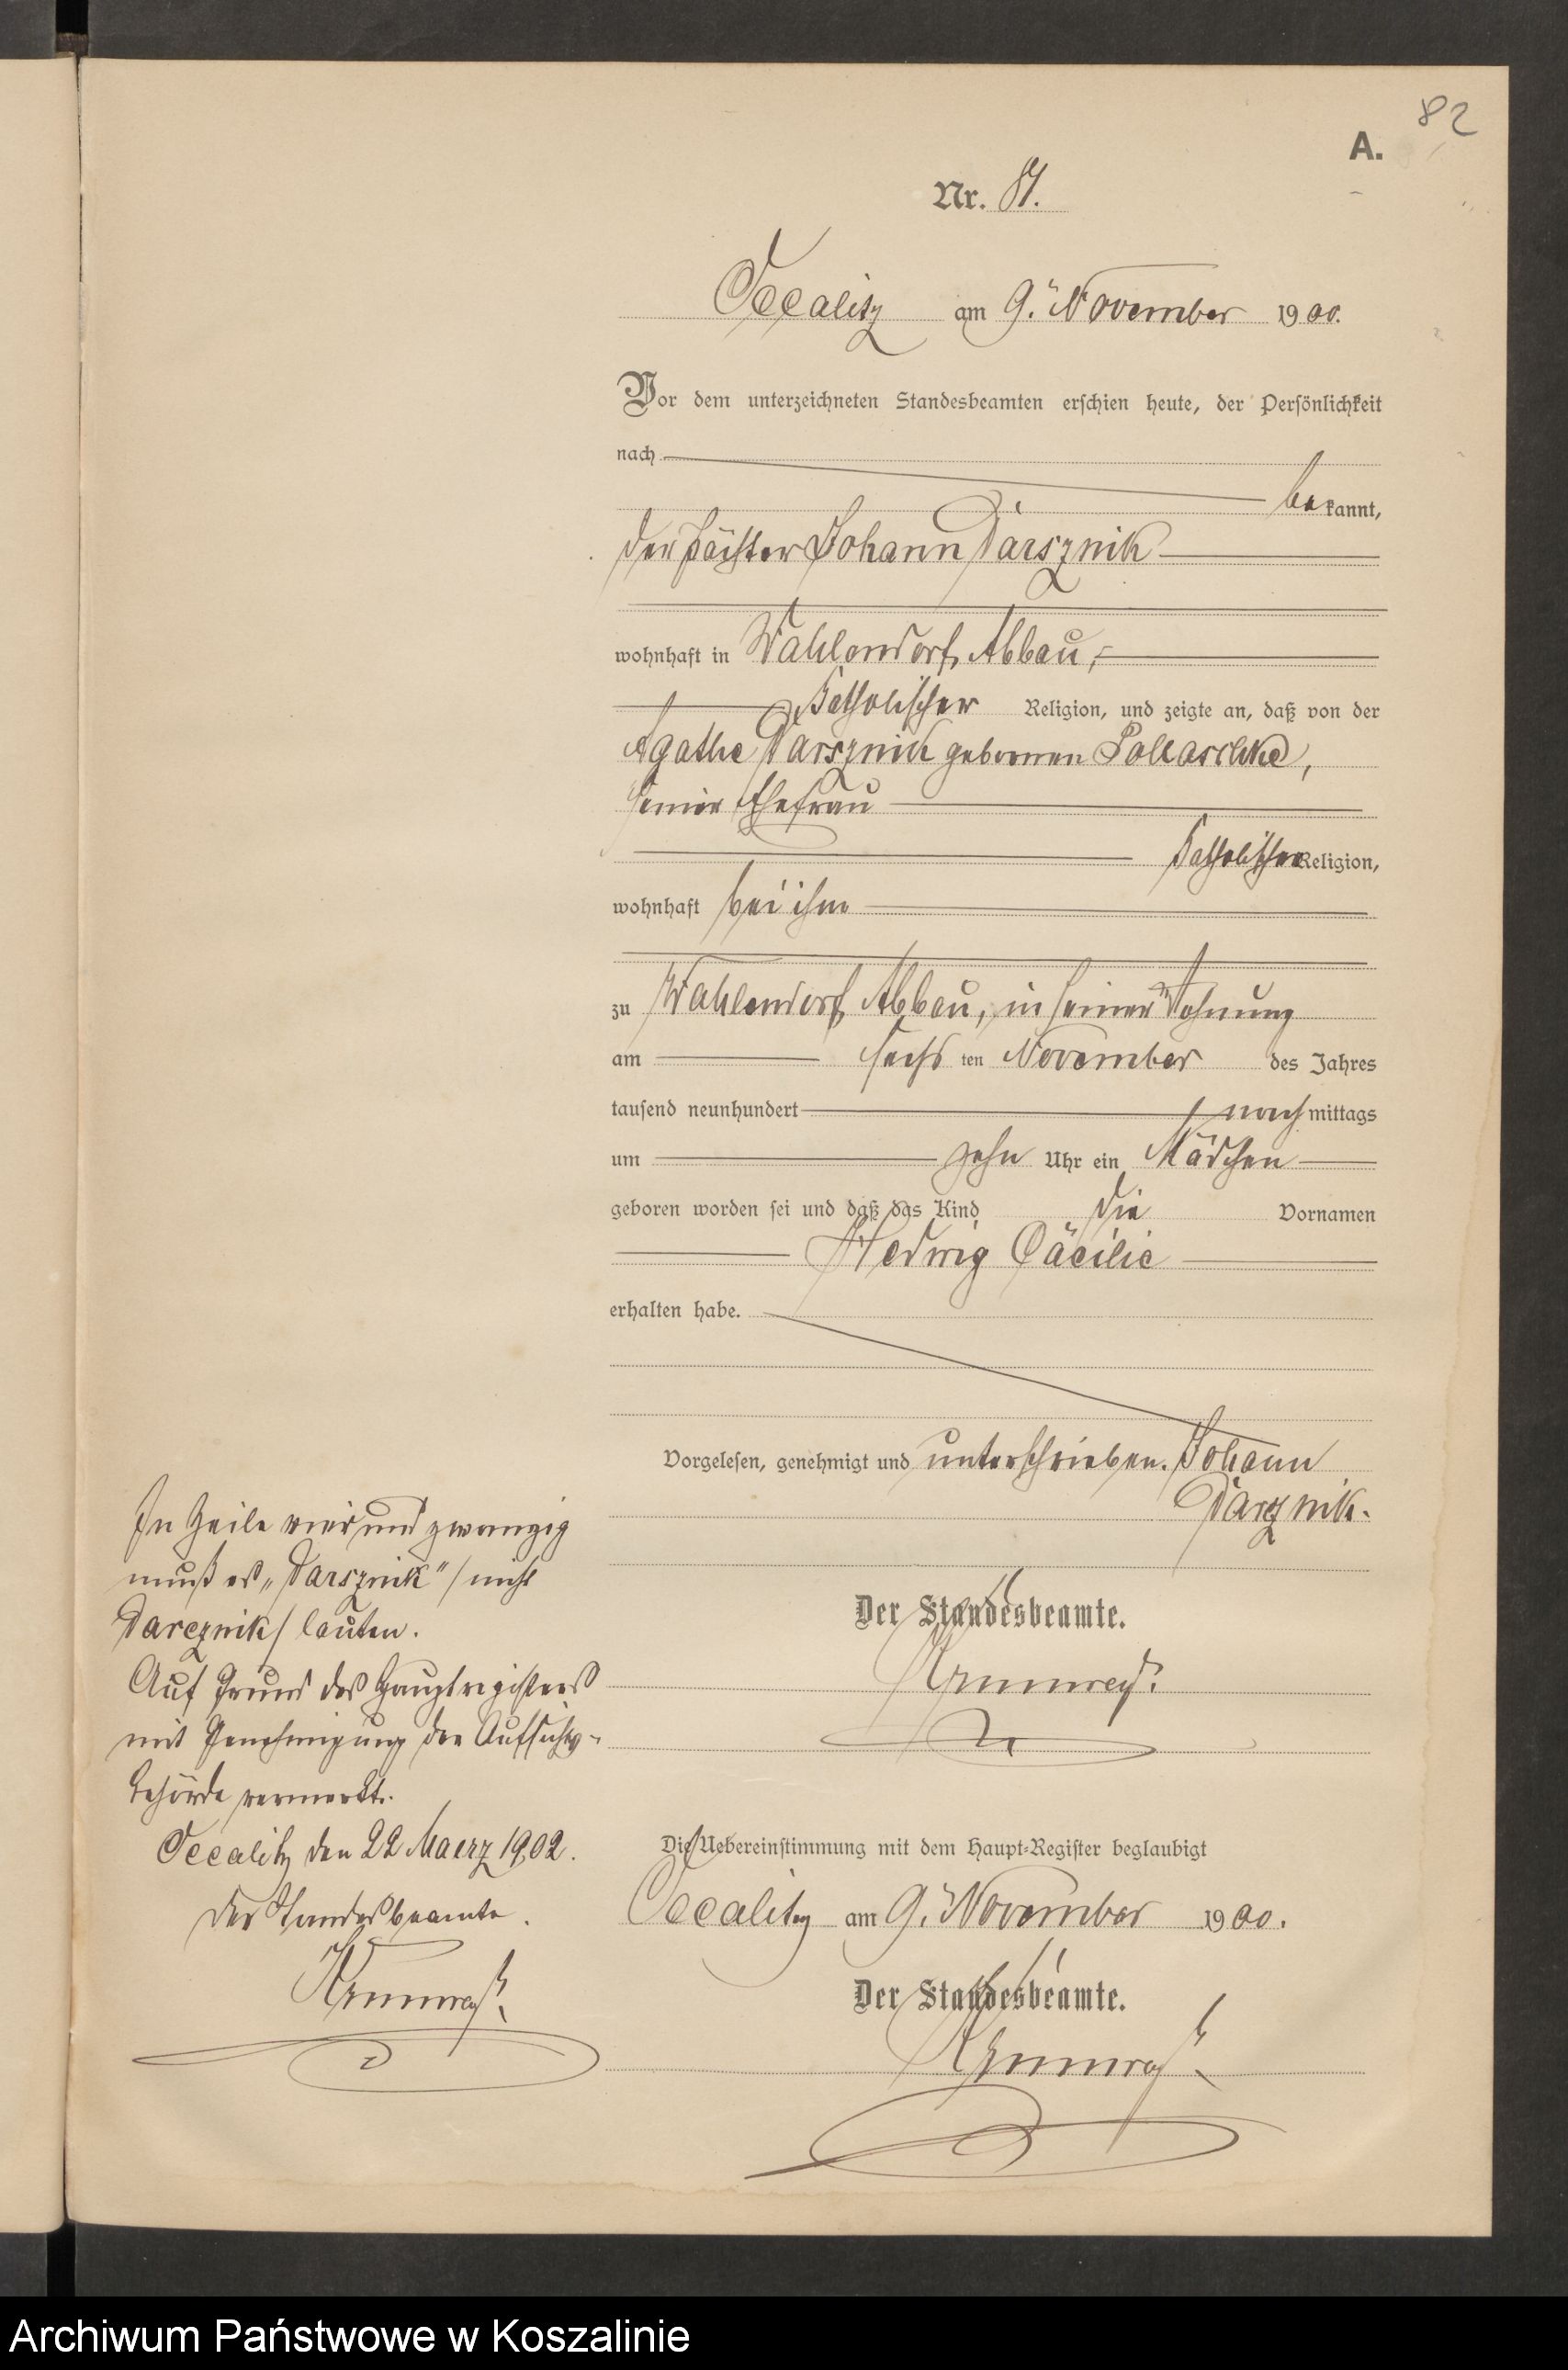 82
A.
Nr. 81.
Occalitz am 9. November 1900.
Vor dem unterzeichneten Standesbeamten erschien heute, der Persönlichkeit
nach
bekannt,
der Pächter Johann Darsznik
wohnhaft in Wahlendorf Abbau,
katholischer Religion, und zeigte an, daß von der
Agathe Darsznik gebornen Pollaschke,
seiner Ehefrau
katholischer Religion,
wohnhaft bei ihm
zu Wahlendorf Abbau, in seiner Wohnung
am sechsten November des Jahres
tausend neunhundert nachmittags
um zehn Uhr ein Mädchen
geboren worden sei und daß das Kind die Vornamen
Hedwig Cäcilie
erhalten habe.
Vorgelesen, genehmigt und unterschrieben. Johann
Darcznik.
Der Standesbeamte.
Die Uebereinstimmung mit dem Haupt-Register beglaubigt
Occalitz am 9. November 1900.
Der Standesbeamte.
In Zeile vier und zwanzig
muß es „Darsznik" / nicht
Darcznik / lauten.
Auf Grund des Hauptregisters
mit Genehmigung der Aufsichts-
behörde vermerkt.
Occalitz den 22 Maerz 1902.
Der Standesbeamte.
Archiwum Państwowe w Koszalinie